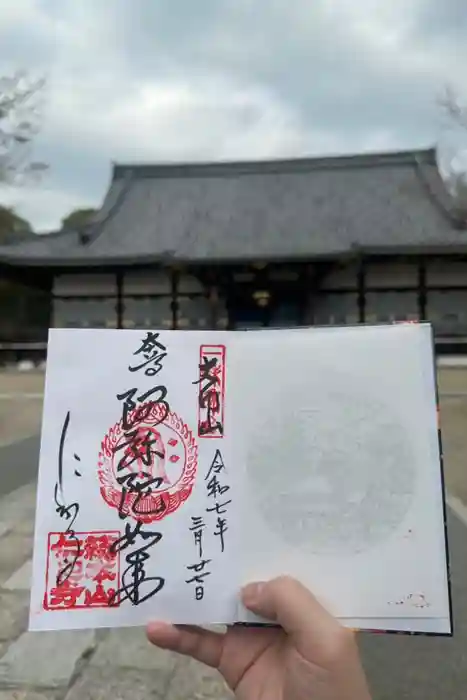 大内山
令和七年
三月廿七日
阿弥陀如来
総本山
仁和寺